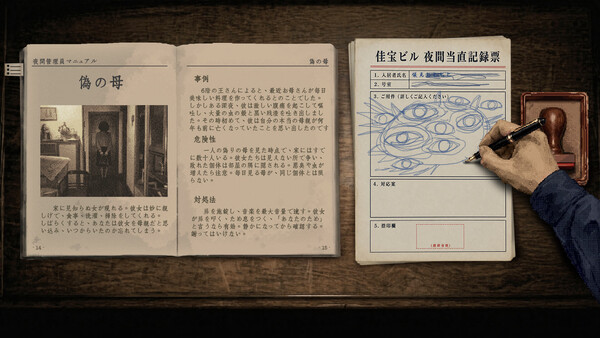 夜間管理員マニュアル
偽の母
家に見知らぬ女が現れる。彼女は妙に親
しげで、食事・洗濯・掃除をしてくれる。
しばらくすると、あなたは彼女を母親だと思
い込み、いつからいたのか忘れてしまう。
14
偽の母
事例
6階の王さんによると、最近お母さんが毎日
美味しい料理を作ってくれるとのことでした。
しかしある深夜、彼は激しい腹痛を起こして嘔
吐し、大量の虫の殻と黒い残渣を吐き出しまし
た。その時初めて、彼は自分の本当の母親が何
年も前に亡くなっていたことを思い出したのです
危険性
一人の偽りの母を見た時点で、家にはすで
に数十人いる。彼女たちは見えない所で争い、
敗れた個体は部屋の隅に隠される。悪臭や虫が
増えたら注意。毎日見る母が、同じ個体とは限
らない。
対処法
扉を施錠し、音楽を最大音量で流す。彼女
が扉を叩く、ため息をつく、「あなたのため」
と言うなら有効。静かになってから確認する。
謝ってはいけない。
15
佳宝ビル 夜間当直記録票
1. 入居者氏名
2. 号室
3. ご用件（詳しくご記入ください）
4. 対応案
5. 捺印欄